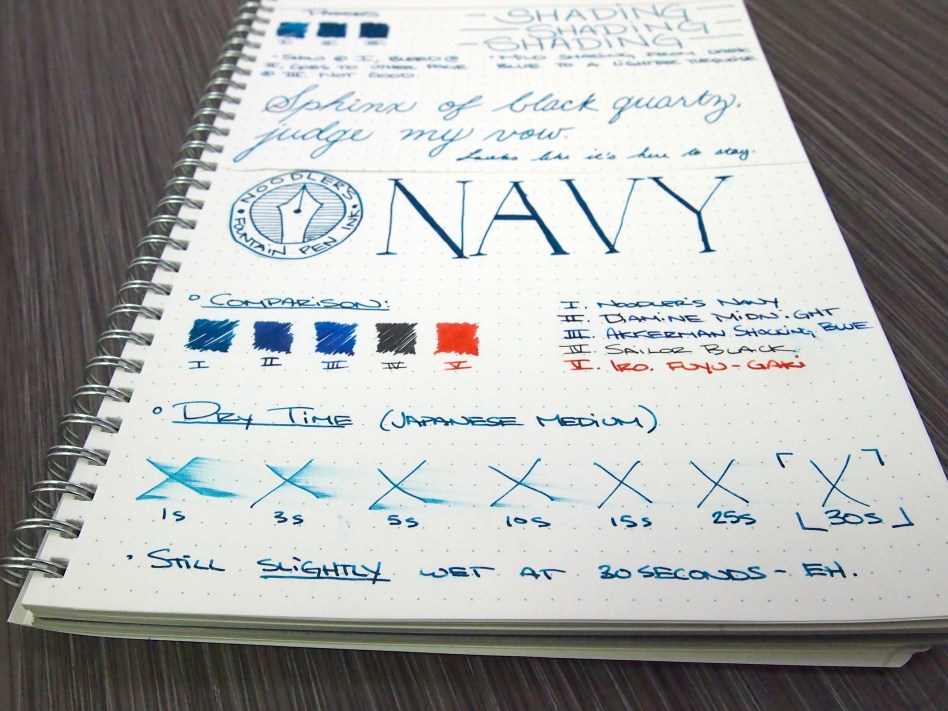 PASSES
SHADING
SHADING
SHADING
I II III
• MILD SHADING FROM DARK
BLUE TO A LIGHTER TURQUOISE
II. GOES TO OTHER PAGE
III. NOT GOOD.
Sphinx of black quartz,
judge my vow.
Looks like it's here to stay.
NOODLER'S
• FOUNTAIN PEN INK •
NAVY
COMPARISON:
I II III IV V
I. NOODLER'S NAVY
II. DIAMINE MIDNIGHT
III. AKKERMAN SHOCKING BLUE
IV. SAILOR BLACK
V. IRO. FUYU-GAKI
DRY TIME (JAPANESE MEDIUM)
1s 3s 5s 10s 15s 25s 30s
• STILL SLIGHTLY WET AT 30 SECONDS - EH.